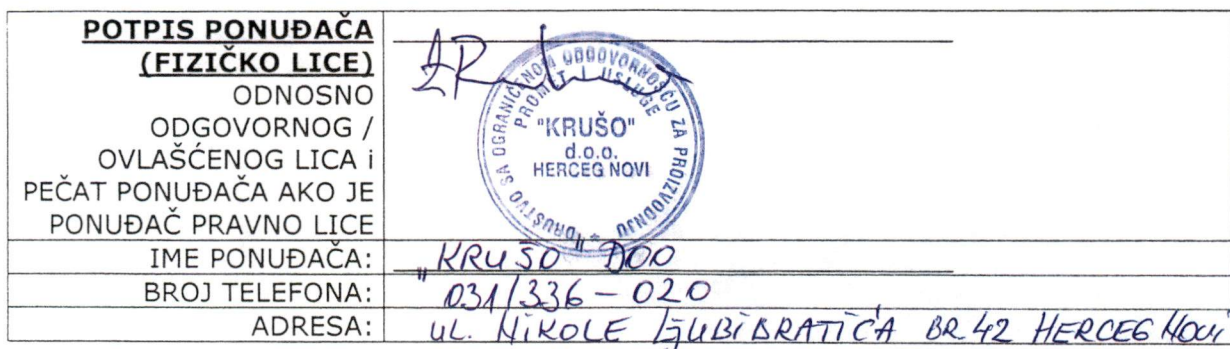 POTPIS PONUĐAČA
(FIZIČKO LICE)
ODNOSNO
ODGOVORNOG /
OVLAŠĆENOG LICA i
PEČAT PONUĐAČA AKO JE
PONUĐAČ PRAVNO LICE
DRUŠTVO SA OGRANIČENOM ODGOVORNOŠĆU ZA PROIZVODNJU
PROMET I USLUGE
"KRUŠO"
d.o.o.
HERCEG NOVI
IME PONUĐAČA: "KRUŠO" DOO
BROJ TELEFONA: 031/336-020
ADRESA: UL. NIKOLE LJUBIBRATIĆA BR.42 HERCEG NOVI